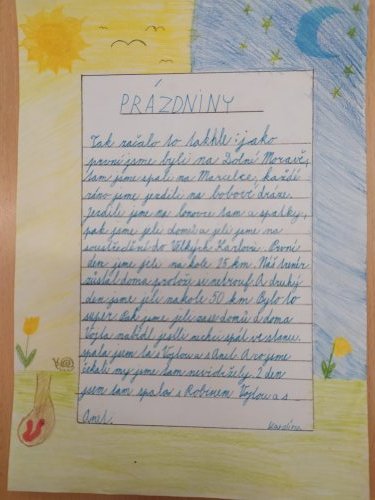 PRÁZDNINY
Tak začalo to takhle: jako
první jsme byli na Dolní Moravě,
tam jsme spali na Marcelce, každé
ráno jsme jezdili na bobové dráze.
Jezdili jsme na lanovce tam a spátky,
pak jsme jeli domů a jeli jsme na
soustředění do Velkých Karlovic. První
den jsme jeli na kole 25 km. Náš trenér
zůstal doma protože se
den jsme jeli na kole 50 km. Bylo to
super. Pak jsme jeli zase domů a doma
Vojta nabídl jestli nechci spát ve stanu.
spala jsem tam s Vojtou a s Anet. A co jsme
čekali my jsme tam nevidržely. 2 den
jsem tam spala s Robinem Vojtou a s
Anet.
Karolína